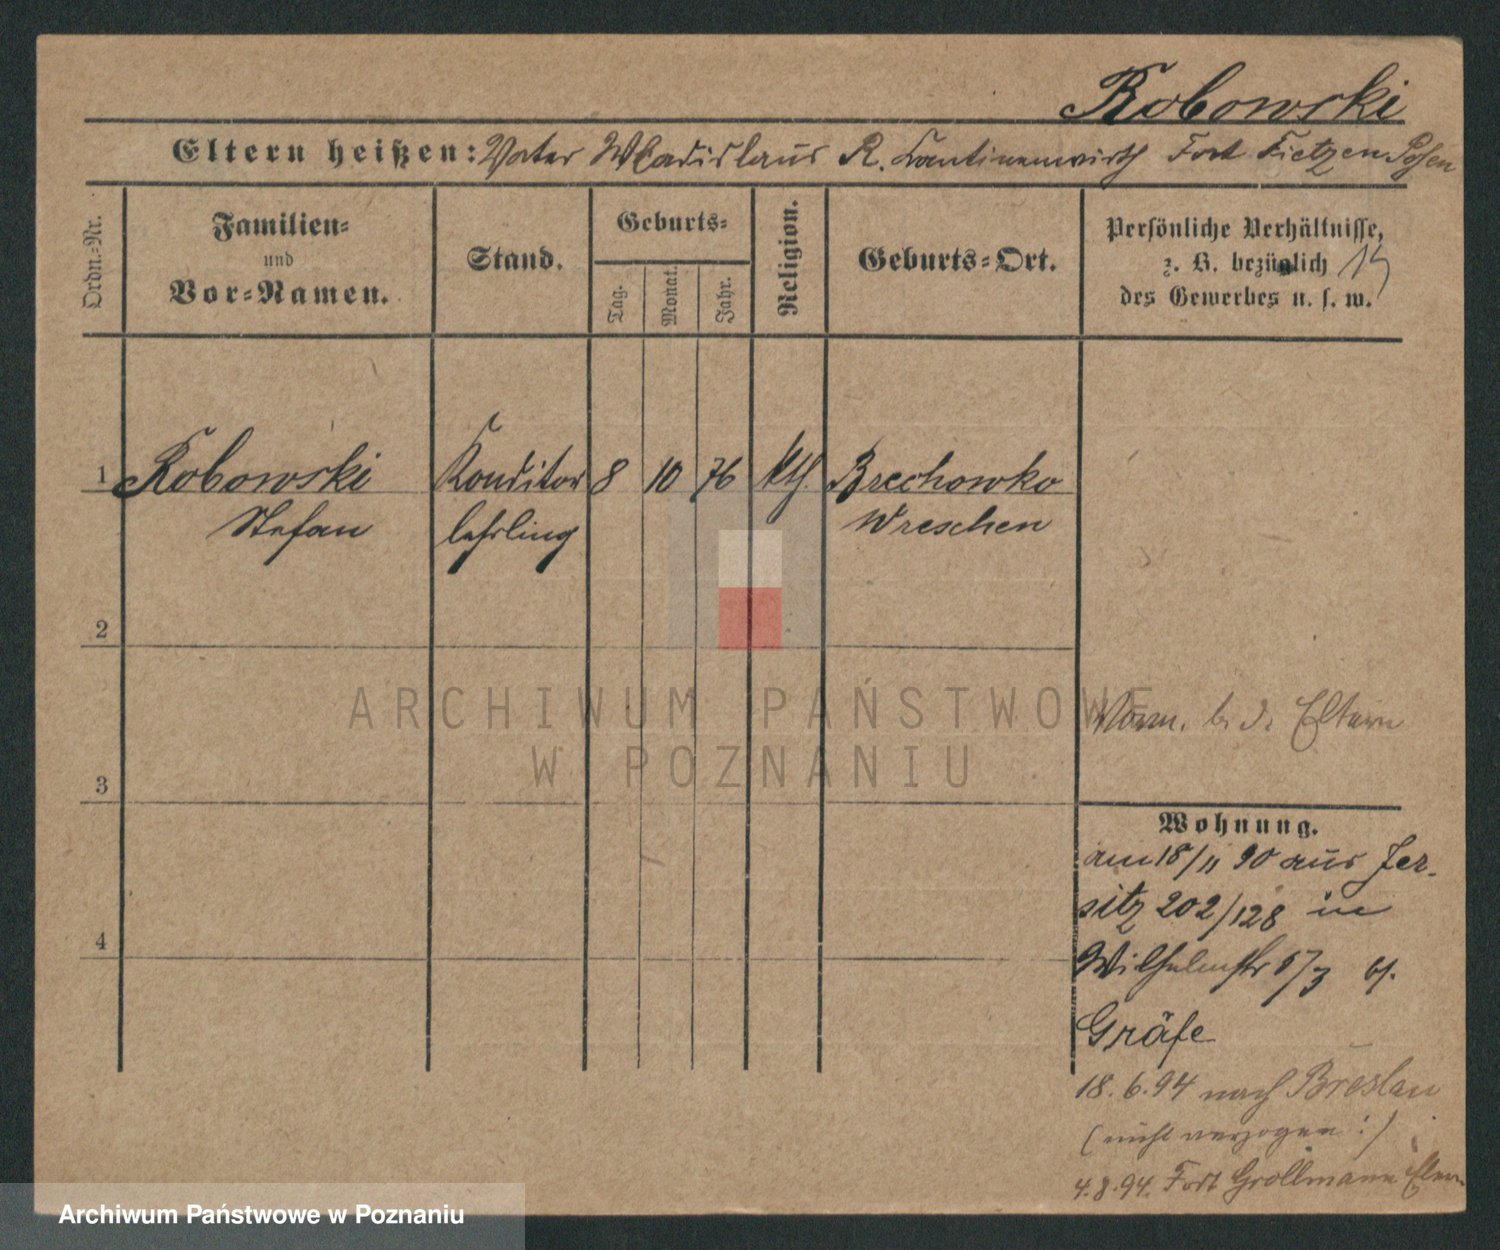 Robowski
Eltern heißen: Vater Wladislaus R. Kantinenwirth Fort Tietzen Posen
Ordn.-Nr.
Familien-
und
Vor-Namen.
Stand.
Geburts-
Tag.
Monat.
Jahr.
Religion.
Geburts-Ort.
Persönliche Verhältnisse,
z. B. bezüglich
des Gewerbes u. s. w.
1 Robowski Konditor 8 10 76 kth. Brechowko
Stefan lehrling Wreschen
2
3
4
b. d. Eltern
Wohnung.
am 18/11 90 aus Jer-
sitz 202/128 in
Wilhelmstr
Gräfe
18.6.94 nach Breslau
(nicht verzogen!)
4.8.94. Fort Grollmann Eltern
ARCHIWUM PAŃSTWOWE
W POZNANIU
Archiwum Państwowe w Poznaniu